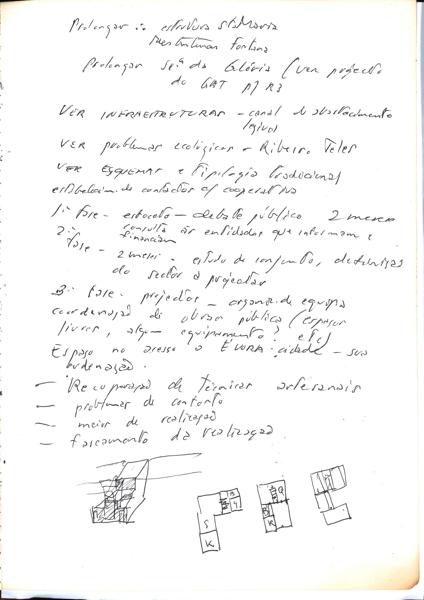 Prolongar estrutura Sta Maria
reestruturar Fontana
prolongar Srª da Glória (ver projecto
do GAT p/ R3
VER INFRAESTRUTURAS - canal de abastecimento
VER problemas ecológicos - Ribeiro Teles
VER ESQUEMAS e tipologia tradicional
estabelecim. de contactos c/ cooperativa
1ª fase - - debate público 2 meses
consulta às entidades que informam e
financiam
2ª fase - 2 meses - estudo de conjunto,
do sector a projectar
3ª fase - projectos - organiz. de equipa
coordenação de obras públicas (espaços
livres, algum equipamento? etc)
Espaço no acesso a ÉVORA cidade - sua
ordenação.
— Recuperação de técnicas artesanais
— problemas de conforto
— meios de realização
— faseamento da realização
S
K
K